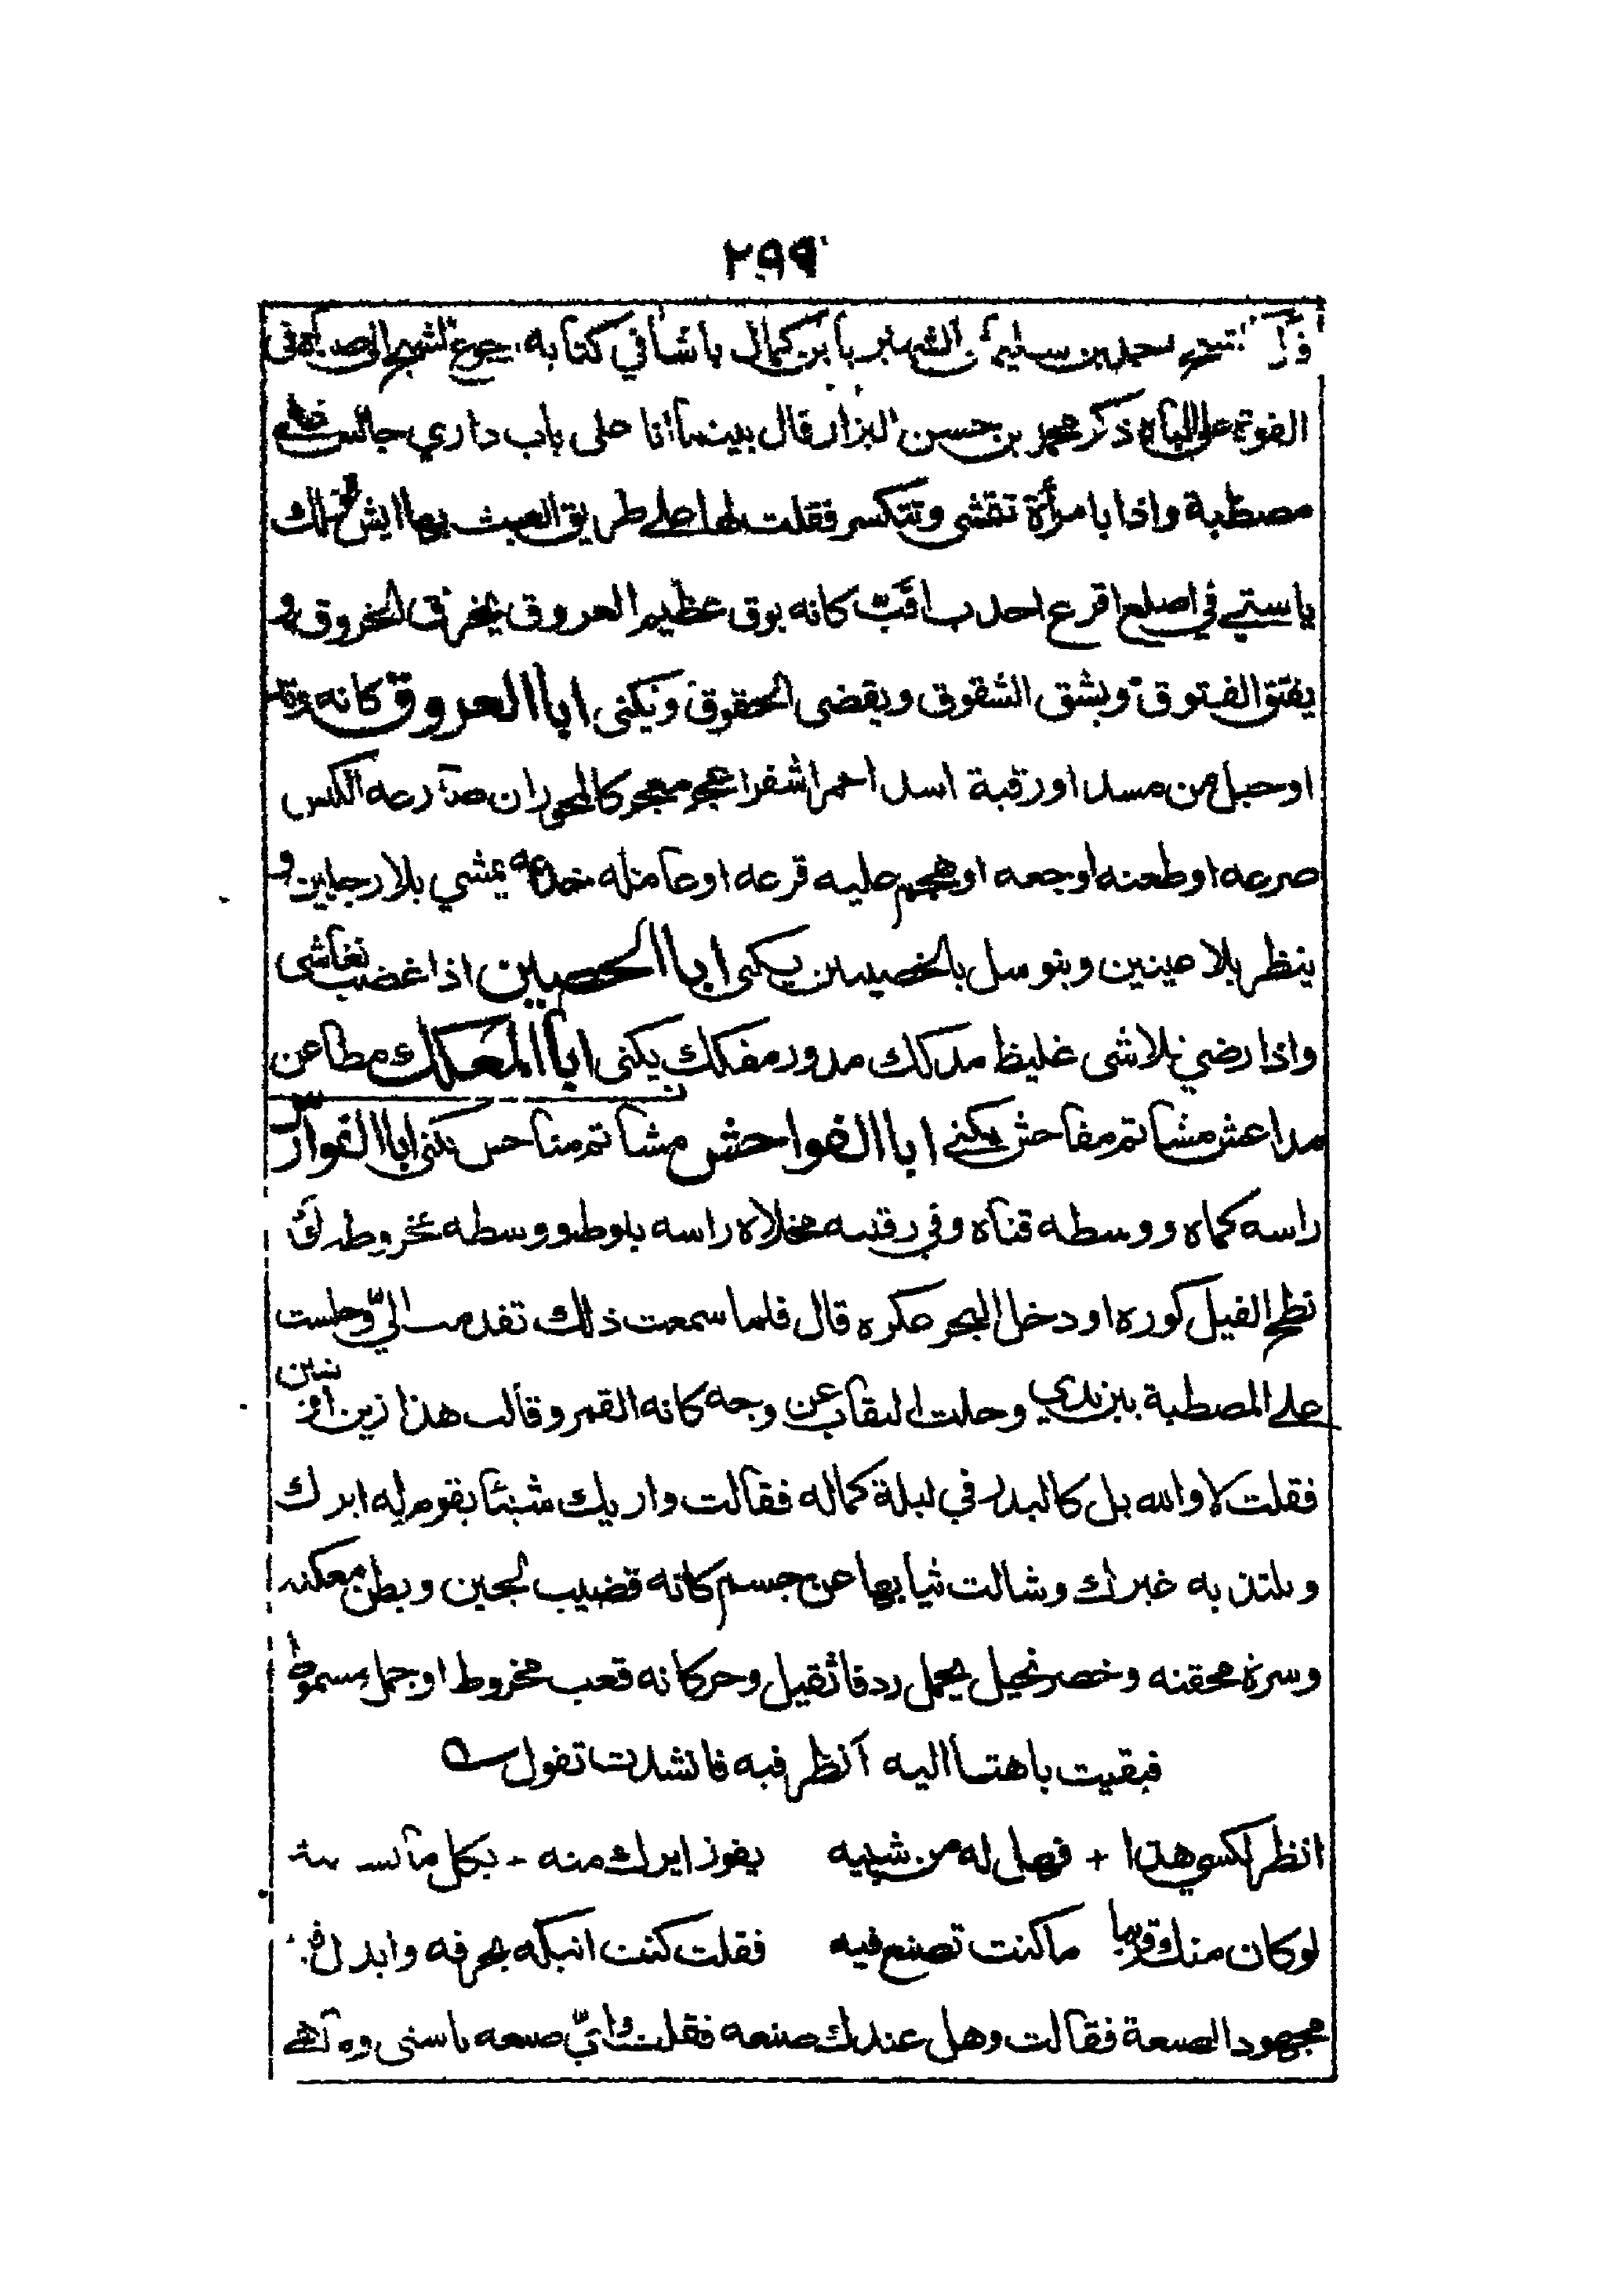 ٢٩٩
احمد بن سليمان الشهير بابن كمال باشا في كتابه رجوع الشيخ الى صباه في
القوة على الباه ذكر محمد بن حسن البزار قال بينما انا على باب داري جالس على
مصطبة واذا بامرأة تتمشى وتتكسر فقلت لها على طريق العبث بها ايش لك
ياستي في اصلع اقرع احدب اقبّ كانه بوق عظيم العروق يخرق الخروق و
يفتق الفتوق ويشق الشقوق ويقضى الحقوق ويكنى ابا العروق كانه
او حبل من مسد او رقبة اسد احمر اشقر اعجر معجر كالمحور ان صارعه الكس
صرعه او طعنه اوجعه او هجم عليه قرعه او عامله خدعه يمشي بلا رجلين و
ينظر بلا عينين ويتوسل بالخصيتين يكنى ابا الحصين اذا غضب تغاشى
واذا رضي تلاشى غليظ مدكك مدور مفكك يكنى ابا المعكك مطاعن
مداعش مشاتم مفاحش يكنى ابا الفواحش مشاتم مناحس يكنى ابا الفوارس
راسه كماه ووسطه قناة وفي رقبته مخلاه راسه بلوط ووسطه مخروط لو
نطح الفيل كوره او دخل البحر عكره قال فلما سمعت ذلك تقدمت اليّ وجلست
على المصطبة بين يدي وحلت النقاب عن وجه كانه القمر وقالت هذا زين او شين
فقلت لا والله بل كالبدر في ليلة كماله فقالت واريك شيئا يقوم له ايرك
ويلتذ به غيرك وشالت ثيابها عن جسم كانه قضيب لجين وبطن معكنه
وسرة محقنه وخصر نحيل يحمل ردفا ثقيل وحر كانه قعب مخروط او جمل مسموط
فبقيت باهتا اليه انظر فيه فانشدت تقول
انظر لكسي هذا + فهل له من شبيه يفوز ايرك منه - بكل ما
لو كان منك قريبا ما كنت تصنع فيه فقلت كنت انيكه بحرفه وابذل فيه
مجهود الصنعة فقالت وهل عندك صنعه فقلت وايّ صنعه ياستى وما هي